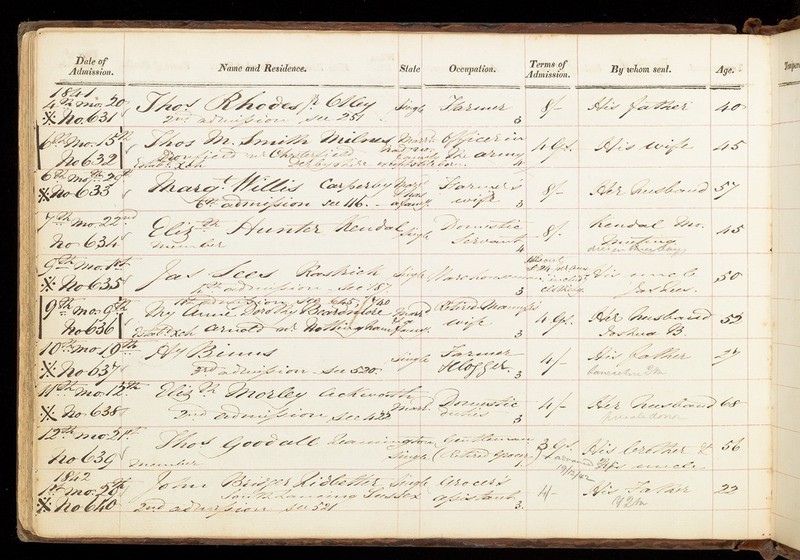 Date of Admission. Name and Residence. State Occupation. Terms of Admission. By whom sent. Age.
1841
4th mo. 20 Thos Rhodes Otley Single Farmer 8/- His father 40
No. 631 2nd admission see 251 3
6th Mo. 15th Thos M. Smith Milnes Marrd Officer in 4 Gs. His wife 45
No 632 near Chesterfield family the army
Derbyshire 4
6th Mo. 26th Margt Willis Carperby Marrd Farmer's 8/- Her husband 57
No 633 6th admission see 116. family wife 3
7th mo. 22nd Elizth Hunter Kendal Single Domestic 8/- Kendal Mo. 45
No 634 member Servant 4 Meeting
9th Mo. 1st Jas Lees Rastrick Single Warehouseman His uncle 50
No 635 4th admission see 157 3 clothing Joshua
9th mo. 9th My Anne Dorothy Beardmore Marrd Retired Man's 4 Gs. Her husband 52
No 636 Arnold nr Nottingham family wife 3 Joshua B.
10th mo 19th Hy Binns Single Farmer 4/- His father 27
No 637 3rd admission see 520. Clogger 3
11th mo. 12th Elizth Morley Ackworth Marrd Domestic 4/- Her husband 68
No 638 2nd admission see 422 duties 3
12th mo 21st Thos Goodall Leamington Gentleman 3 Gs. His brother & 56
No 639 member Single (retired grocer) His uncle
1842
1st mo. 28th John Bridger Lidbetter Single Grocer's 4/- His Father 22
No 640 South Lancing Sussex assistant
2nd admission see 521 3.